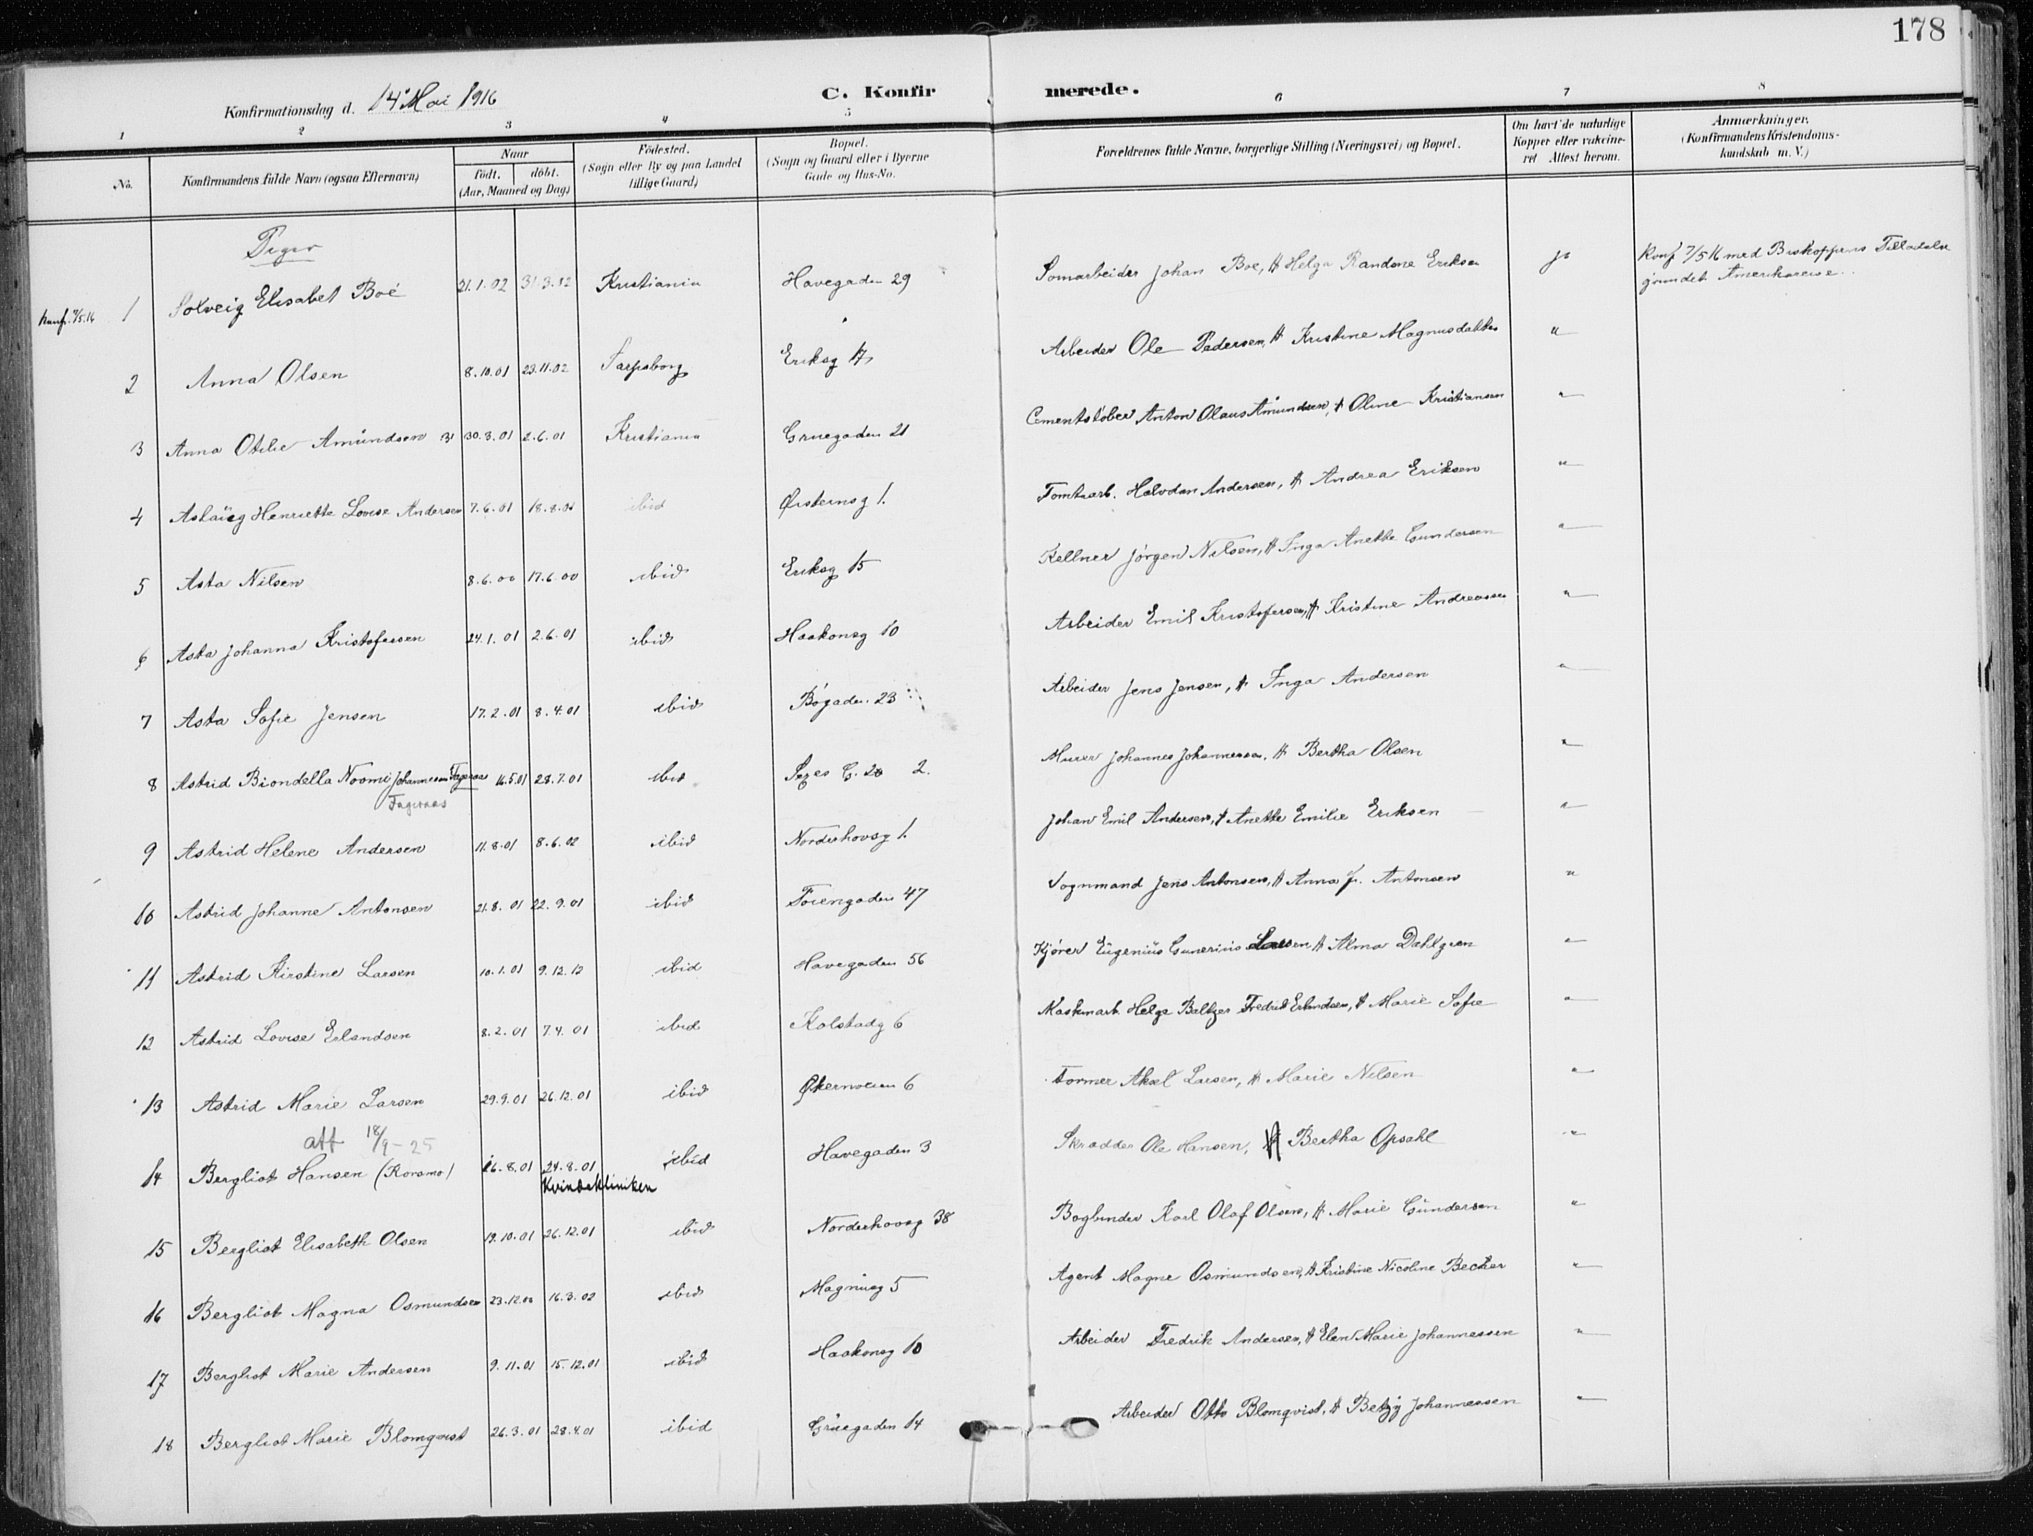 178
Konfirmationsdag d. 14' Mai 1916
C. Konfirmerede.
1 2 3 4 5 6 7 8
No. Konfirmandens fulde Navn (ogsaa Efternavn) Naar født. døbt. (Aar, Maaned og Dag) Fødested. (Sogn eller By og paa Landet tillige Gaard) Bopæl. (Sogn og Gaard eller i Byerne Gade og Hus-No. Forældrenes fulde Navne, borgerlige Stilling (Næringsvei) og Bopæl. Om havt de naturlige Kopper eller vakcineret Attest herom. Anmærkninger. (Konfirmandens Kristendomskundskab m. V.)
Piger
konf. 7/5.16 1 Solveig Elisabet Boe 21.1.02 31.3.02 Kristiania Havegaden 29 Johan Boe, & Helga Randine Eriksen ja Konf 7/5 16 med Biskoppens Tilladelse grundet Amerikareise.
2 Anna Olsen 8.10.01 23.11.02 Sarpsborg Eriksg 17 Arbeider Ole Pedersen, & Kristine Magnusdatter "
3 Anna Otilie Amundsen 31 30.3.01 2.6.01 Kristiania Gruegaden 21 Cementstøber Anton Olaus Amundsen, & Oline Kristiansen "
4 Aslaug Henriette Lovise Andersen 7.6.01 18.8.01 ibid Østernsg 1. Tomtearb. Halvdan Andersen, & Andrea Eriksen "
5 Asta Nilsen 8.6.00 17.6.00 ibid Eriksg 15 Kellner Jørgen Nilsen, & Inga Anette Gundersen "
6 Asta Johanna Kristofersen 24.1.01 2.6.01 ibid Haakonsg 10 Arbeider Emil Kristofersen, & Kristine Andreassen "
7 Asta Sofie Jensen 17.2.01 8.4.01 ibid Bøgaden 23 Arbeider Jens Jensen, & Inga Andersen "
8 Astrid Biondella Noomi Johannessen Fageraas 16.5.01 28.7.01 ibid G. 20 2. Murer Johannes Johannessen, & Bertha Olsen "
Fageraas
9 Astrid Helene Andersen 11.8.01 8.6.02 ibid Norderhovsg 1. Johan Emil Andersen, & Anette Emilie Eriksen "
10 Astrid Johanne Antonsen 21.8.01 22.9.01 ibid Tøiengaden 47 Vognmand Jens Antonsen, & Anna J. Antonsen "
11 Astrid Kirstine Larsen 10.1.01 9.12.12 ibid Havegaden 56 Kjører Eugenius Gunerius Larsen & Alma Dahlgren "
12 Astrid Lovise Erlandsen 8.2.01 7.4.01 ibid Kolstadg 6 Maskinarb. Helge Baltzer Fredrik Erlandsen, & Marie Sofie "
13 Astrid Marie Larsen 29.9.01 26.12.01 ibid Økernveien 6 Former Aksel Larsen, & Marie Nilsen "
att 18/9-25
14 Bergliot Hansen (Roramo) 16.8.01 24.8.01 Kvindekliniken ibid Havegaden 3 Skrædder Ole Hansen, & Bertha Opsahl "
15 Bergliot Elisabeth Olsen 19.10.01 26.12.01 ibid Norderhovsg 38 Bogbinder Karl Olaf Olsen, & Marie Gundersen "
16 Bergliot Magna Osmundsen 23.12.00 16.3.02 ibid Magnusg 5 Agent Magne Osmundsen, & Kristine Nicoline Becker "
17 Bergliot Marie Andersen 9.11.01 15.12.01 ibid Haakonsg 10 Arbeider Fredrik Andersen, & Elen Marie Johannessen "
18 Bergliot Marie Blomqvist 26.3.01 28.4.01 ibid Gruegaden 14 Arbeider Otto Blomqvist, & Betzy Johannessen "